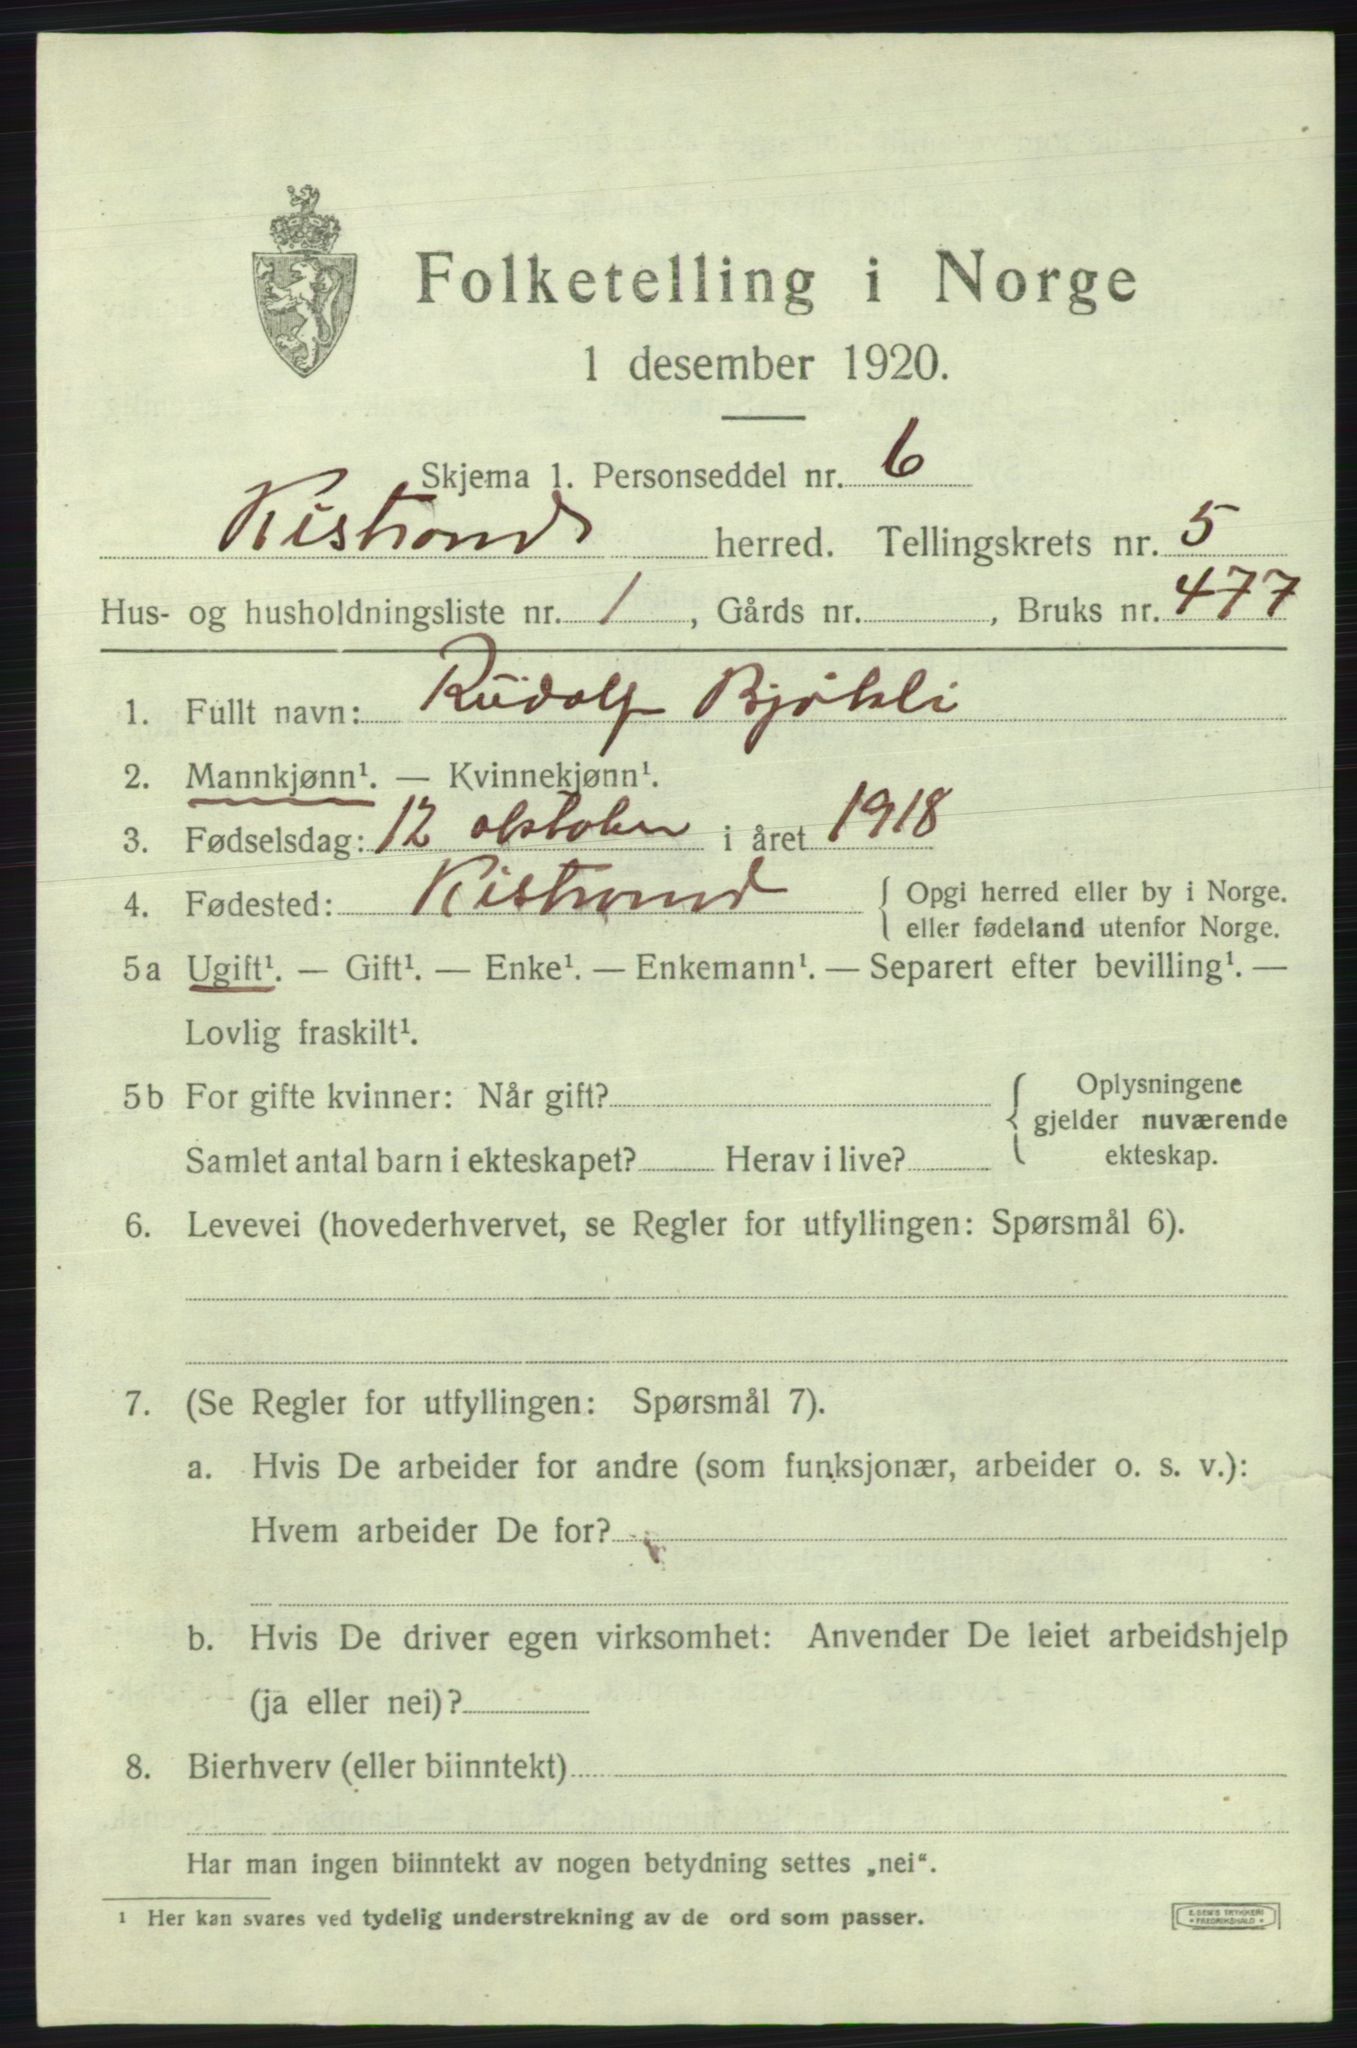 Folketelling i Norge
1 desember 1920.
Skjema 1. Personseddel nr. 6
Kistrand herred. Tellingskrets nr. 5
Hus- og husholdningsliste nr. 1, Gårds nr. , Bruks nr. 477
1. Fullt navn: Rudolf
2. Mannkjønn¹. — Kvinnekjønn¹.
3. Fødselsdag: 12 oktober i året 1918
4. Fødested: Kistrand { Opgi herred eller by i Norge.
eller fødeland utenfor Norge.
5a Ugift¹. — Gift¹. — Enke¹. — Enkemann¹. — Separert efter bevilling¹. —
Lovlig fraskilt¹.
5b For gifte kvinner: Når gift? { Oplysningene
gjelder nuværende
Samlet antal barn i ekteskapet? Herav i live? ekteskap.
6. Levevei (hovederhvervet, se Regler for utfyllingen: Spørsmål 6).
7. (Se Regler for utfyllingen: Spørsmål 7).
a. Hvis De arbeider for andre (som funksjonær, arbeider o. s. v.):
Hvem arbeider De for?
b. Hvis De driver egen virksomhet: Anvender De leiet arbeidshjelp
(ja eller nei)?
8. Bierhverv (eller biinntekt)
Har man ingen biinntekt av nogen betydning settes „nei“.
¹ Her kan svares ved tydelig understrekning av de ord som passer.
E. SEM'S TRYKKERI
• FREDRIKSHALD •